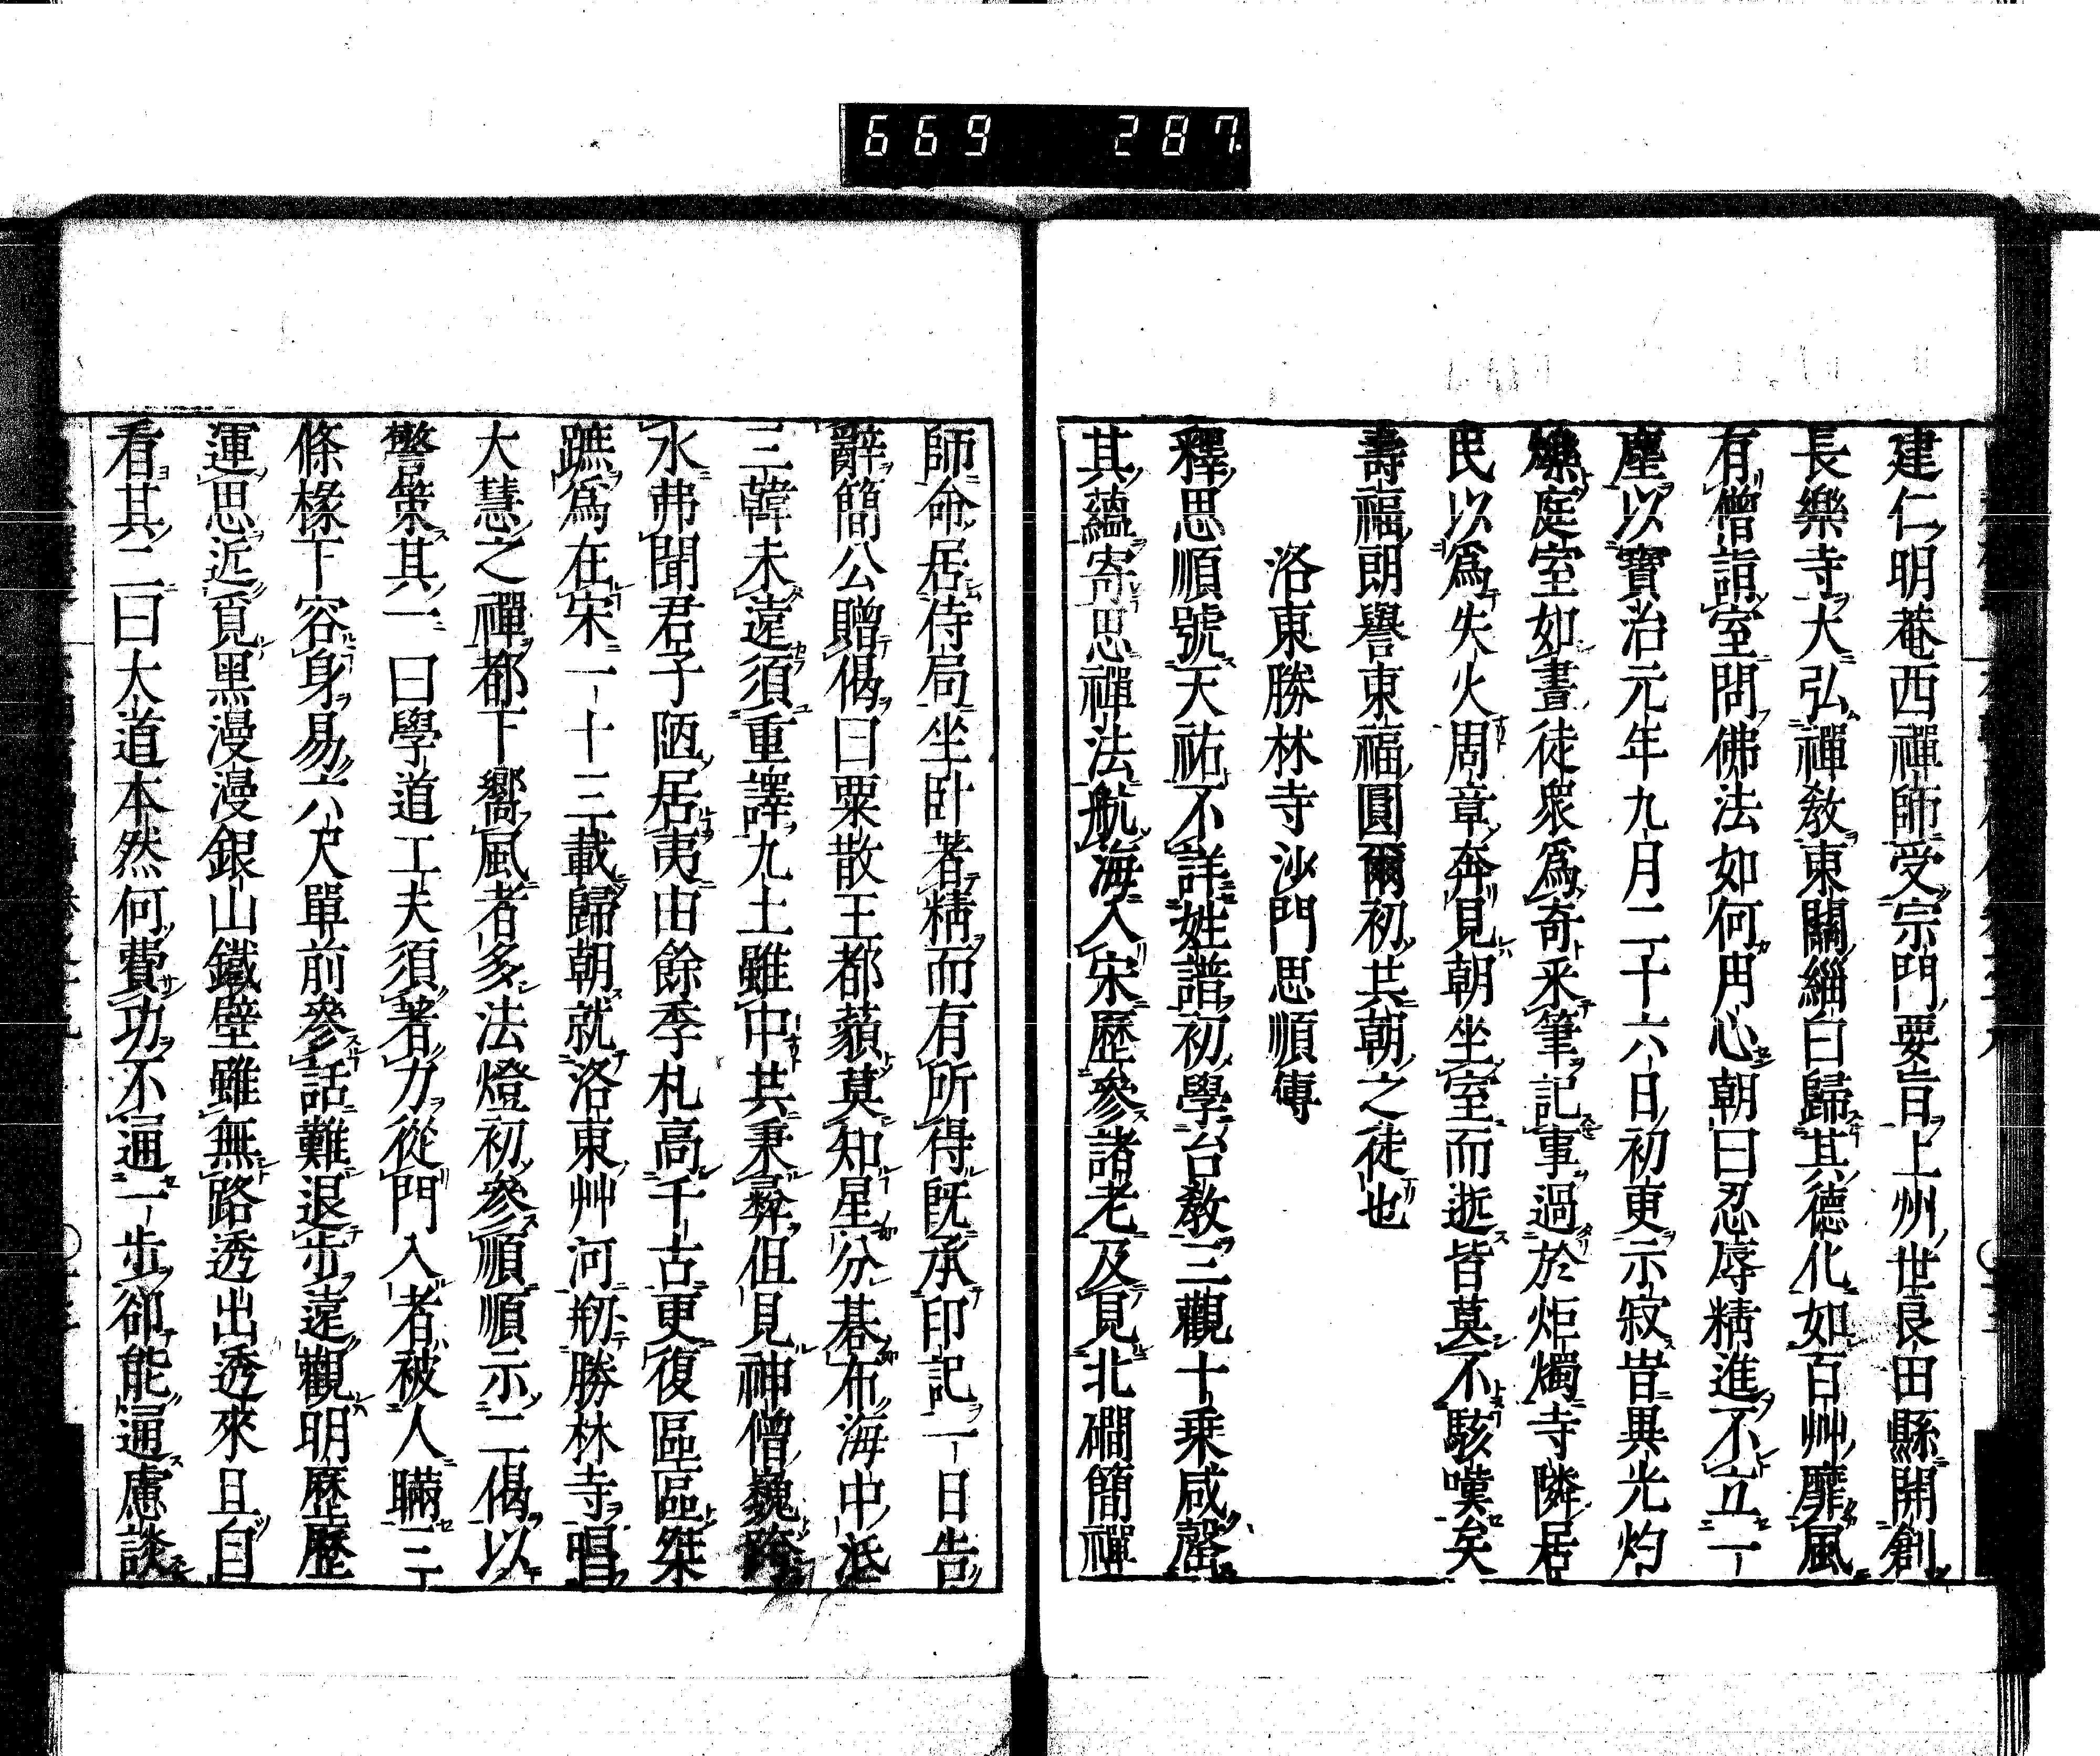 669 287
建仁明菴西禪師受宗門要旨上州世良田縣開創
長樂寺大弘禪教東關緇白歸其德化如百艸靡風
有僧詣室問佛法如何用心朝曰忍辱精進不立一
塵以寶治元年九月二十六日初更示寂旹異光灼
爍庭室如晝徒衆爲奇釆筆記事過於炬燭寺隣居
民以爲失火周章奔見朝坐室而逝皆莫不駭嘆矣
壽福朗譽東福圓爾初共朝之徒也
洛東勝林寺沙門思順傳
釋思順號天祐不詳姓譜初學台教三觀十乗咸罄
其蘊寄思禪法航海入宋歷參諸老及見北磵簡禪
師命居侍局坐臥著精而有所得旣承印記一日告
辭簡公贈偈曰粟散王都藐莫知星分碁布海中坻
三韓未遠須重譯九土雖中共秉彝但見神僧巍跨
水弗聞君子陋居夷由餘季札高千古更復區區桀
蹠爲在宋一十三載歸朝就洛東艸河剏勝林寺唱
大慧之禪都下嚮風者多法燈初參順順示二偈以
警策其一曰學道工夫須著力從門入者被人瞞三
條椽下容身易六尺單前參話難退步遠觀明歷歷
運思近覓黑漫漫銀山鐵壁雖無路透出透來且自
看其二曰大道本然何費功不通一步卻能通慮談